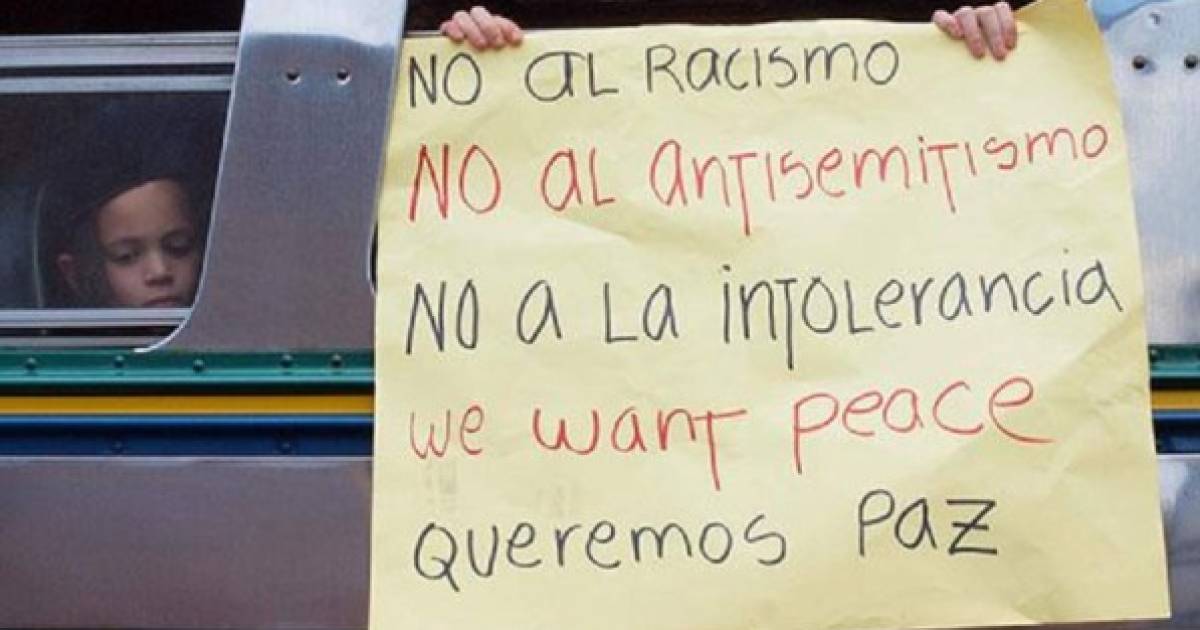 NO AL RACISMO
NO AL ANTISEMITISMO
NO A LA INTOLERANCIA
WE WANT PEACE
QUEREMOS PAZ